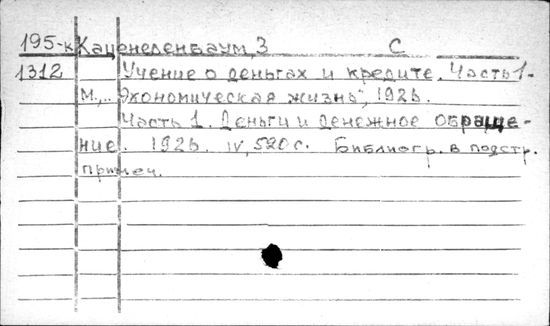 195-к Каценеленбаум, З С
1312 Учение о деньгах и кредите. Часть 1-
М., „Экономическая жизнь", 1926.
Часть 1. Деньги и денежное обраще-
ние. 1926. IV, 520 с. Библиогр. в подстр.
примеч.